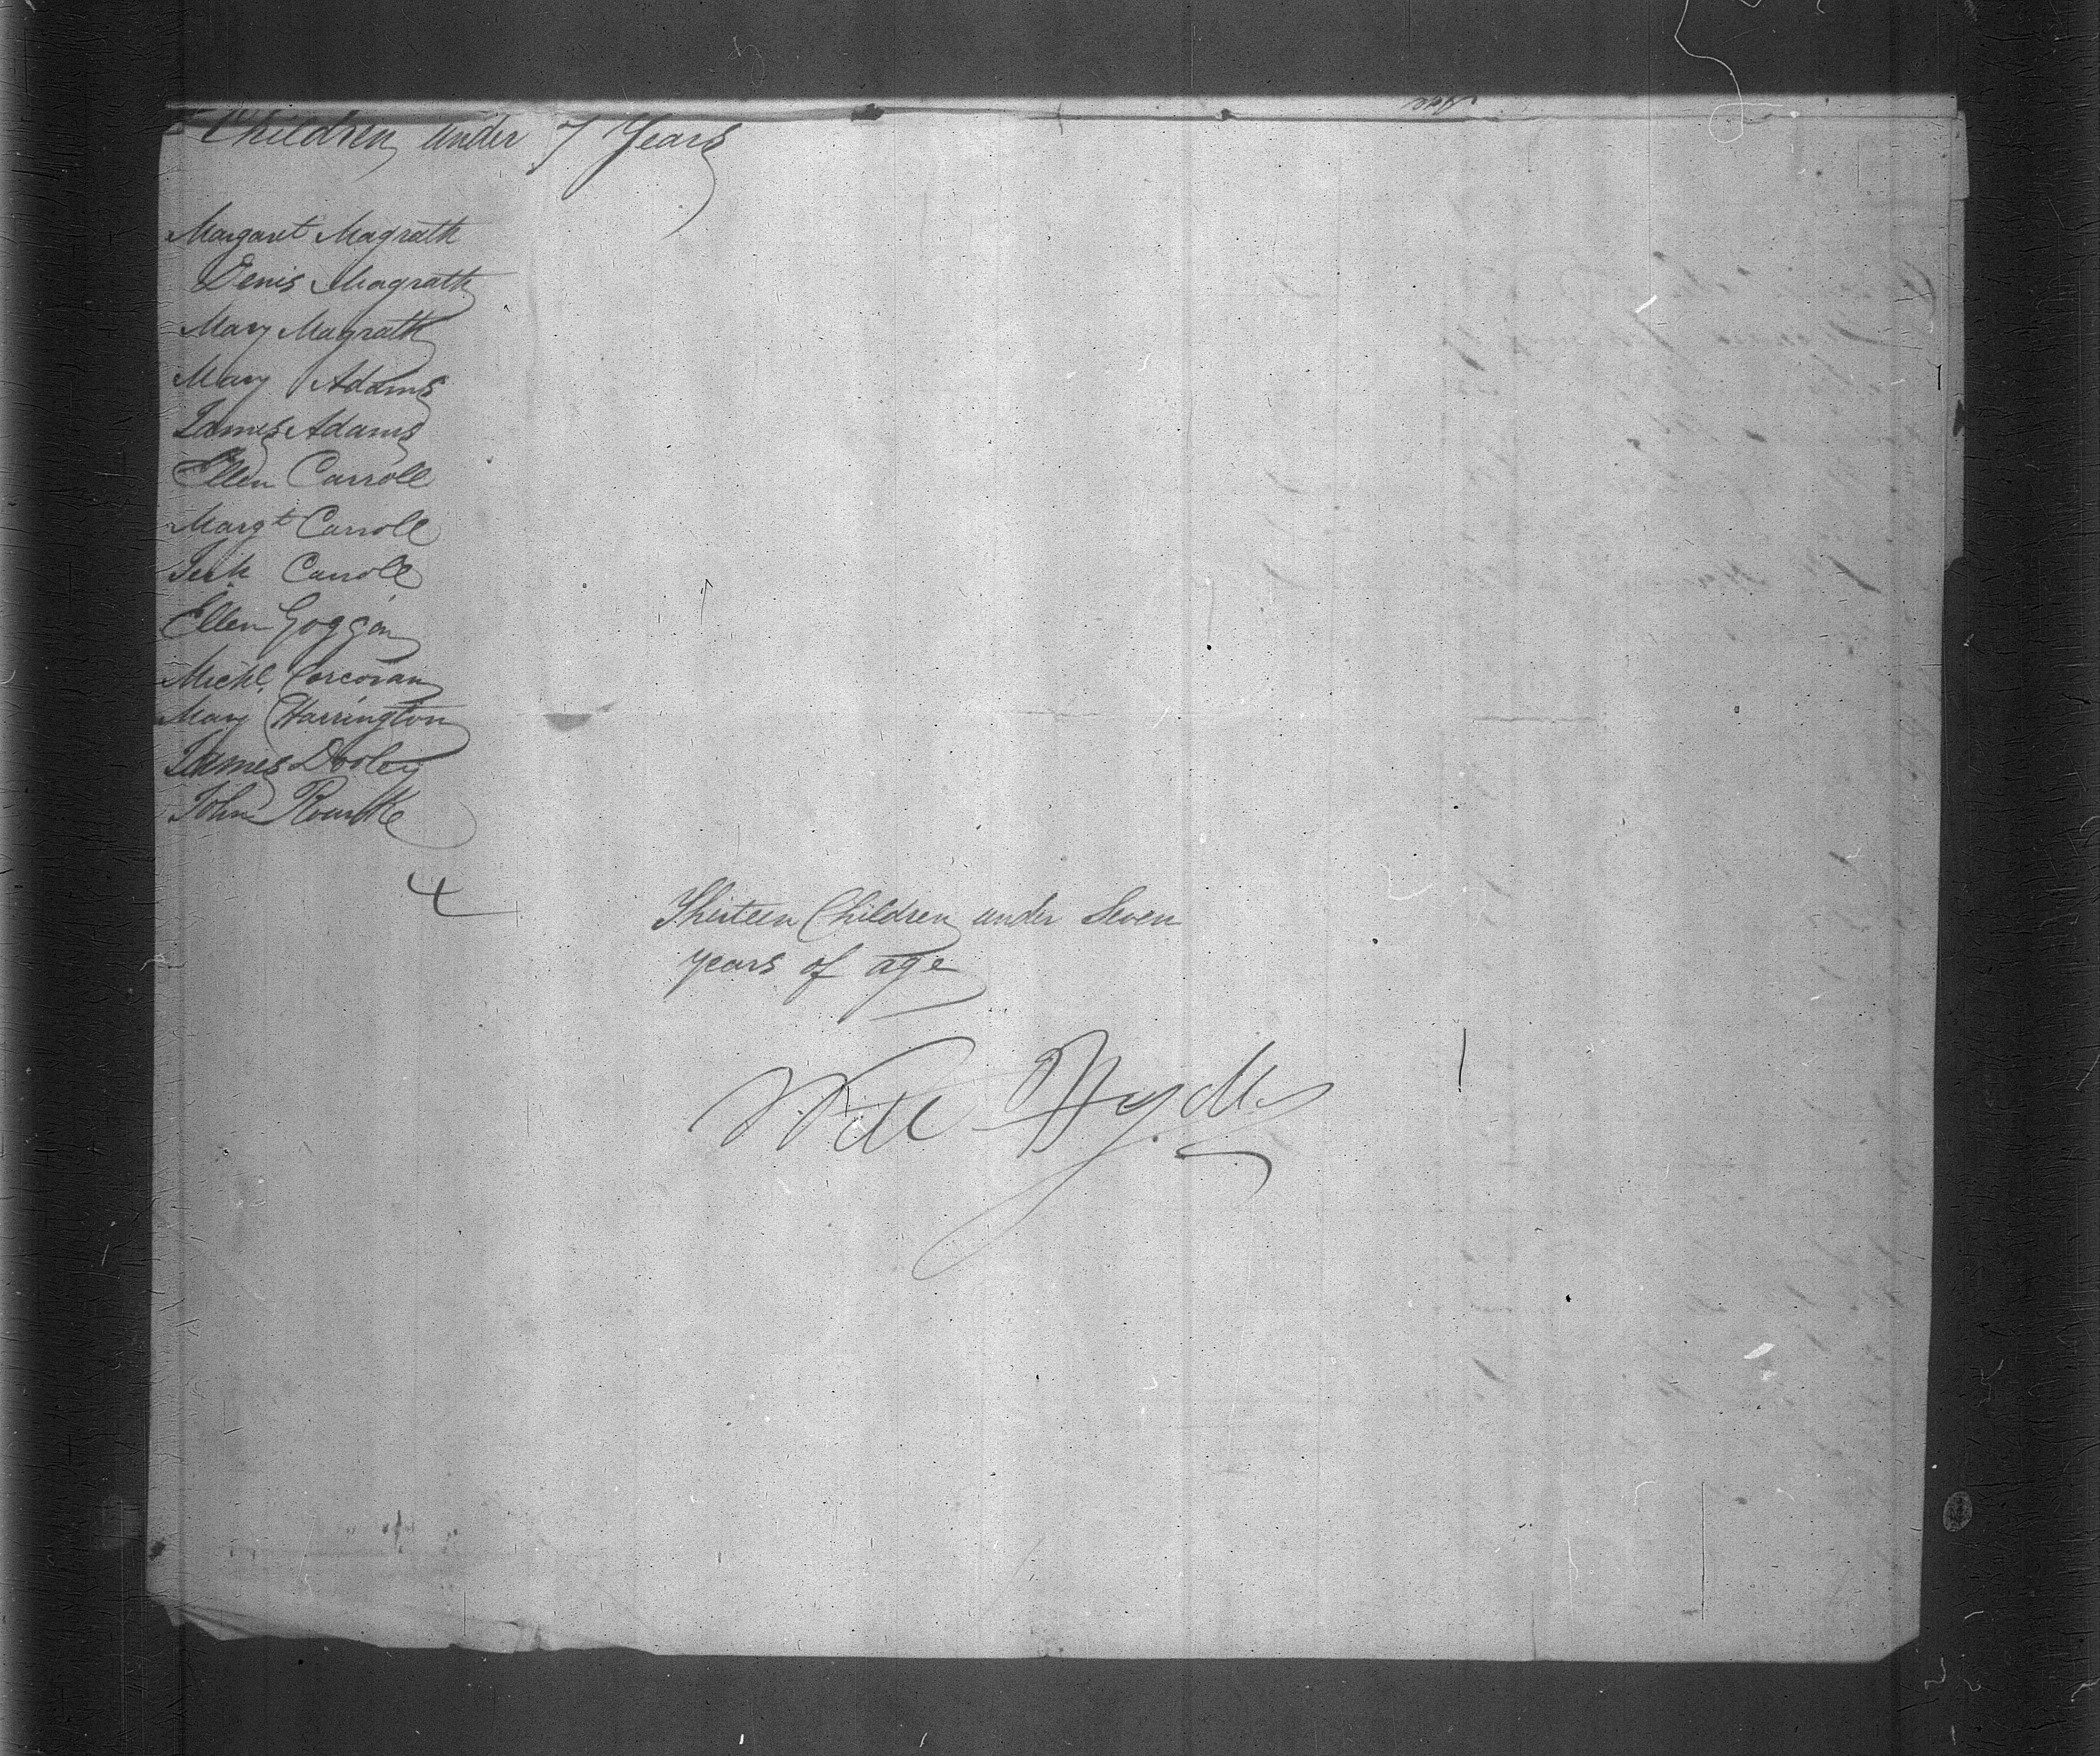 Children under 7 Years
Margaret Magrath
Denis Magrath
Mary Magrath
Mary Adams
James Adams
Ellen Carroll
Margt Carroll
Carroll
Ellen Goggin
Michl. Corcoran
Mary Harrington
James Dooley
John Rourke
Thirteen Children under Seven
years of age